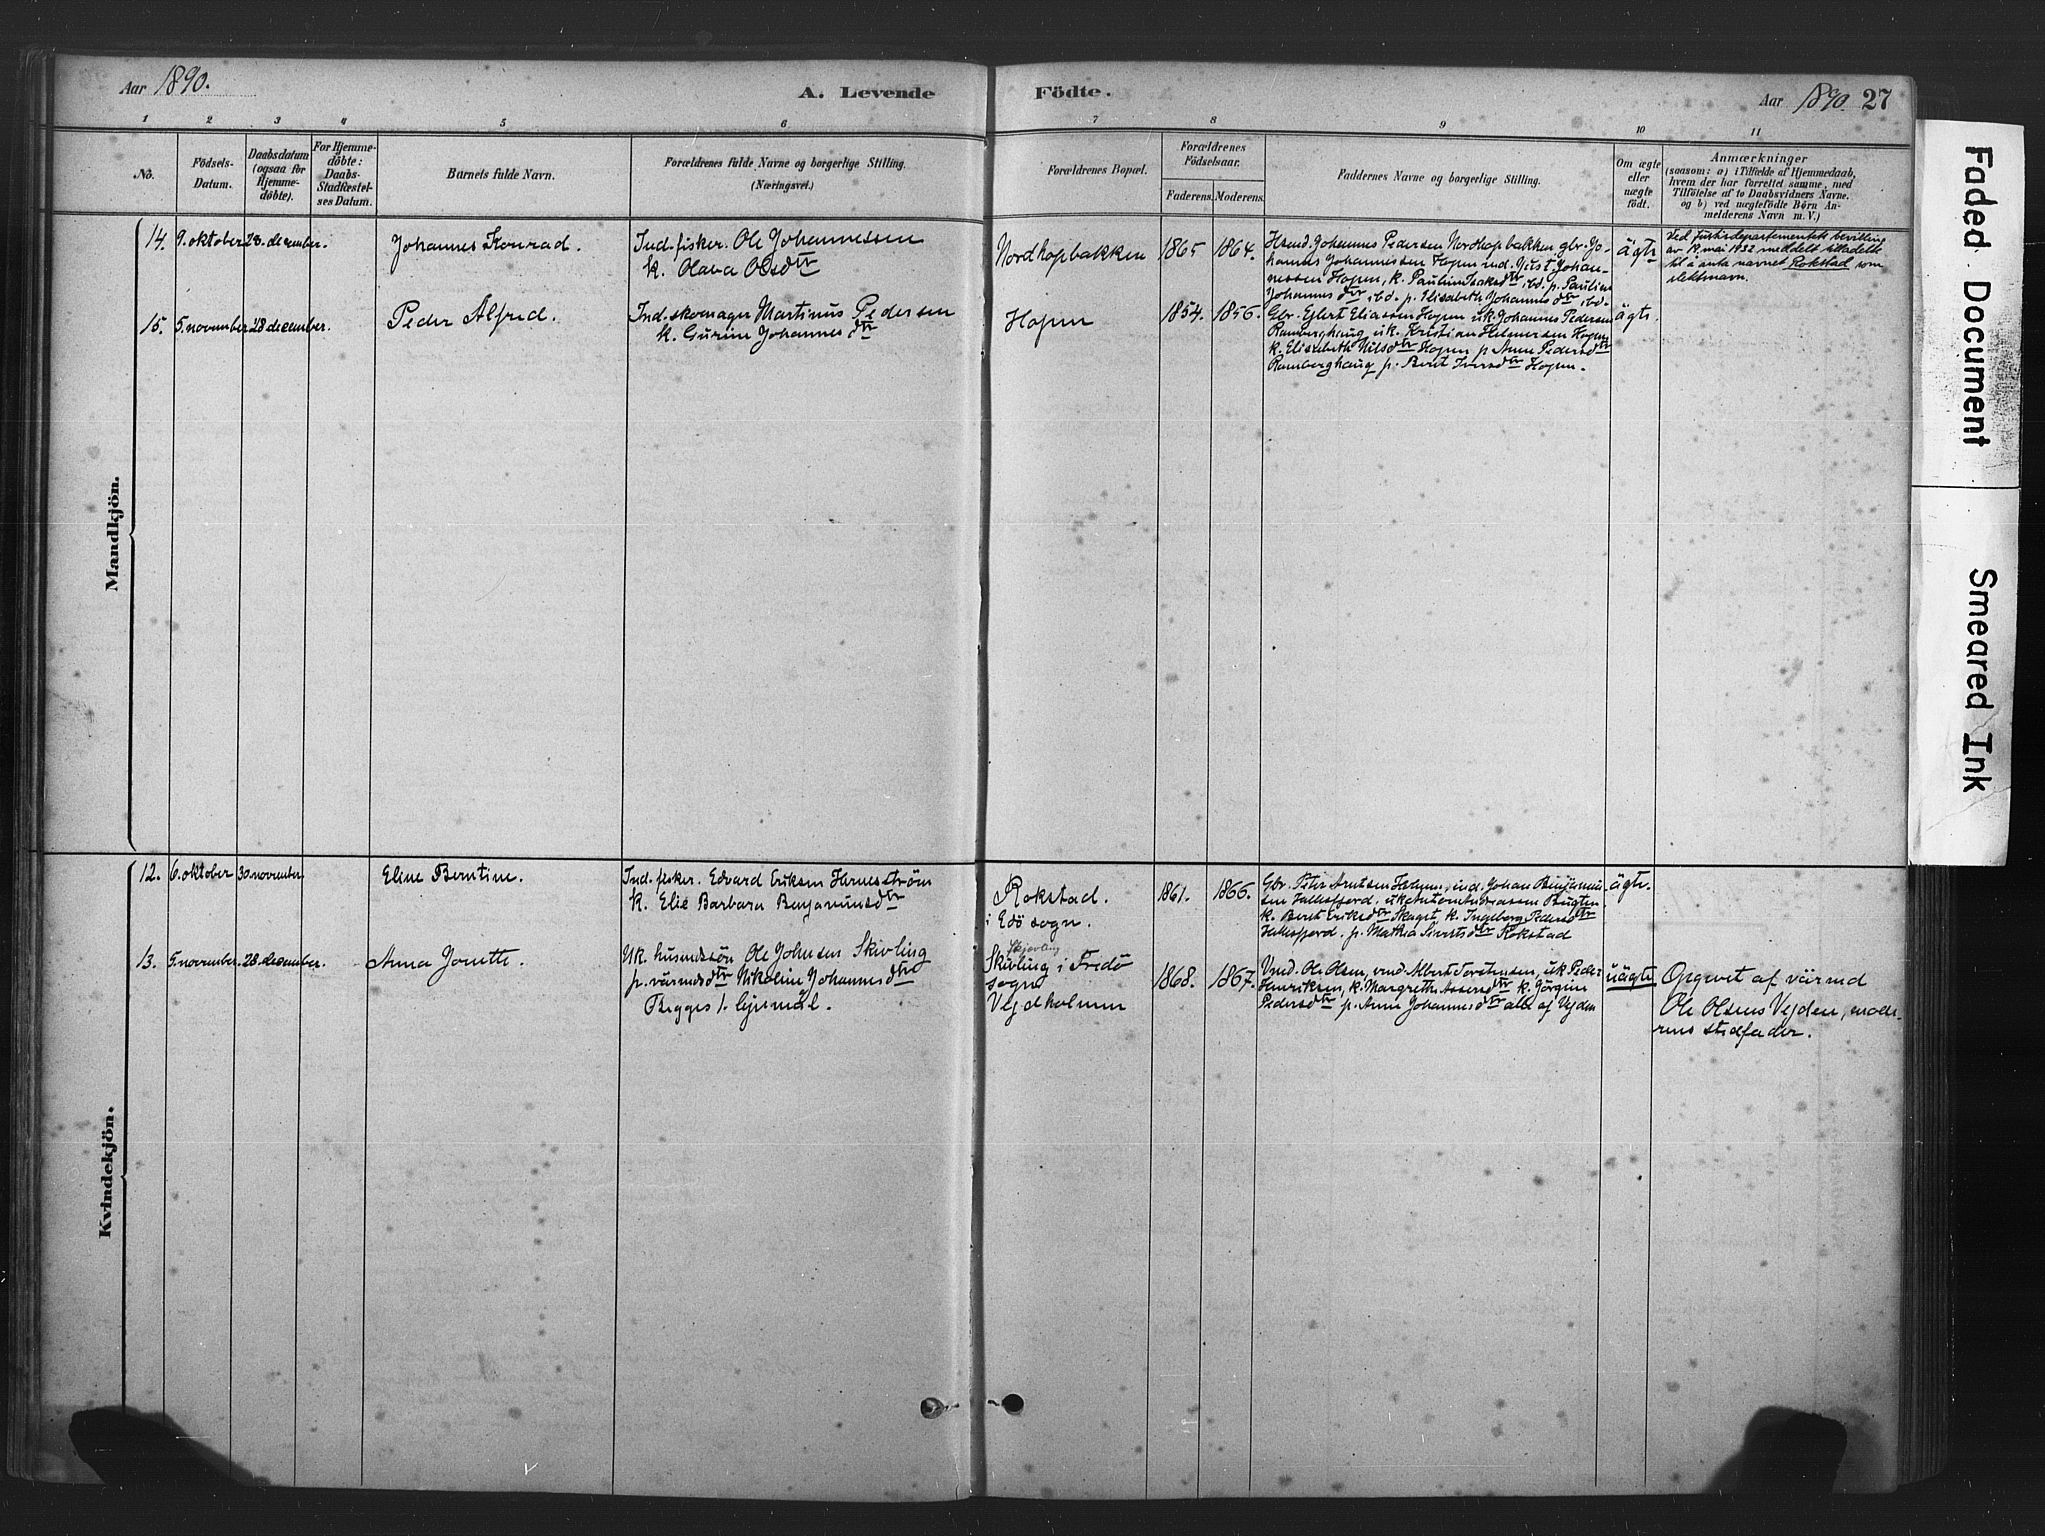 Aar 1890.
A. Levende
Födte.
Aar 1890. 27
1 2 3 4 5 6 7 8 9 10 11
No.
Födsels-
Datum.
Daabsdatum
(ogsaa for
Hjemme-
döbte).
For Hjemme-
döbte:
Daabs-
Stadfæstel-
ses Datum.
Barnets fulde Navn.
Forældrenes fulde Navne og borgerlige Stilling.
(Næringsvei.)
Forældrenes Bopæl.
Forældrenes
Födselsaar.
Faderens. Moderens.
Faddernes Navne og borgerlige Stilling.
Om ægte
eller
uægte
födt.
Anmærkninger
(saasom: a) i Tilfælde af Hjemmedaab,
hvem der har forrettet samme, med
Tilföielse af to Daabsvidners Navne.
og b) ved uægtefödte Börn An-
melderens Navn m. V.)
Mandkjön.
14. 9. oktober 28. december.
Johannes Konrad.
Ind. fisker. Ole Johannessen
k. Olava Olsdtr
Nordhopbakken
1865 1864.
Hsmd. Johannes Pedersen Nordhopbakken gbr. Jo-
hannes Johannessen Hopen ind. Just Johan-
nessen Hopen, k. Pauline Isaksdtr ibd. p. Pauline
Johannesdtr ibd. p. Elisabeth Johannesdtr ibd.
ägte
Ved justisdepartementets bevilling
av 19. mai 1932 meddelt tilladelse
til å anta navnet Rokstad som
slektsnavn.
15. 5. november 28 december.
Peder Alfred.
Ind. skomager Martinus Pedersen
k. Gurine Johannesdtr
Hopen
1854. 1856.
Gbr. Ejlert Eliassen Hopen uk. Johannes Pedersen
Ramberghaug uk. Kristian Helmersen Hopen
k. Elisabeth Nilsdtr Hopen p Anne Pedersdtr
Ramberghaug p. Berit Iversdtr Hopen.
ägte.
Kvindekjön.
12. 6. oktober 30 november
Eline Berntine.
Ind. fisker. Edvard Eriksen Hernesström
k. Elie Barbara Benjaminsdtr
Rokstad.
i Edö sogn.
1861. 1866.
Gbr. Peter Arntsen Holmen, ind. Johan Benjamin-
sen
k. Berit Eriksdtr Skaget, k. Ingeborg Pedersdtr
p. Mathea Sivertsdtr Rokstad
ägte.
13. 5. november. 28. december.
Anna Jonette.
Uk. husmdssön Ole Johnsen Skivling
p. värmdsdtr Nikoline Johannesdtr
Begges 1. lejermål.
Skjevling
Skivling i Fredö
sogn
Vejdholmen
1868. 1867.
Vmd. Ole Olsen, vmd. Albert Torstensen, uk Peder
Henriksen, k. Margrethe Assersdtr k. Jörgine
Pedersdtr p. Anne Johannesdtr alle af Vejden
uägte
Opgivet af värmd
Ole Olsens Vejden, mode-
rens stedfader.
Faded Document
Smeared Ink